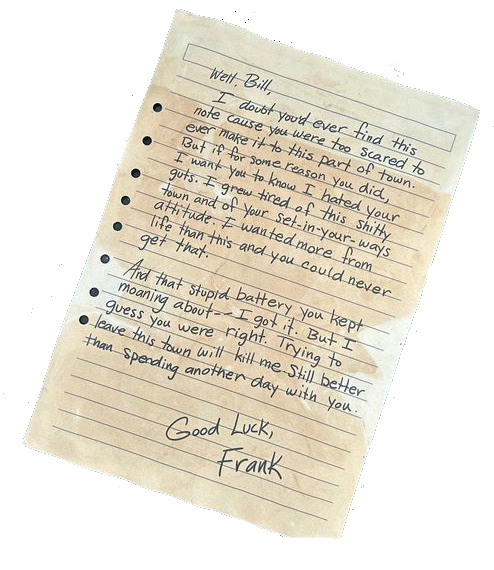 Well, Bill,
I doubt you'd ever find this
note cause you were too scared to
ever make it to this part of town.
But if for some reason you did,
I want you to know I hated your
guts. I grew tired of this shitty
town and of your set-in-your-ways
attitude. I wanted more from
life than this and you could never
get that.
And that stupid battery you kept
moaning about-- I got it. But I
guess you were right. Trying to
leave this town will kill me. Still better
than spending another day with you.
Good Luck,
Frank